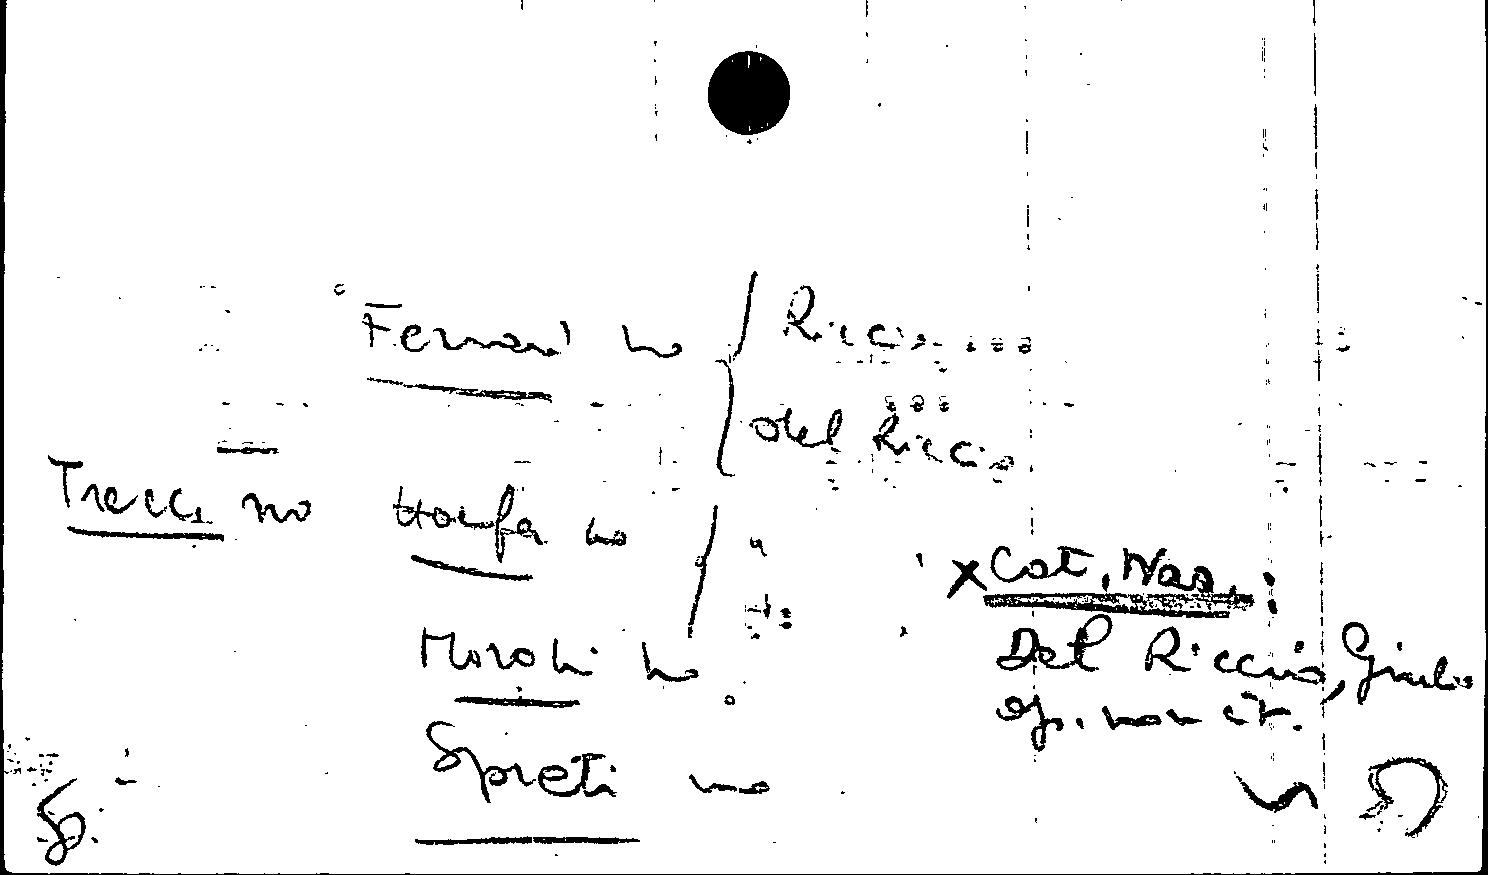 Ferrari no { Riccio
del Riccio
Trecc. no Hoefer no
Moroni no
Spreti no
x Cat. Naz. :
Del Riccio, Giulio
op. non cit.